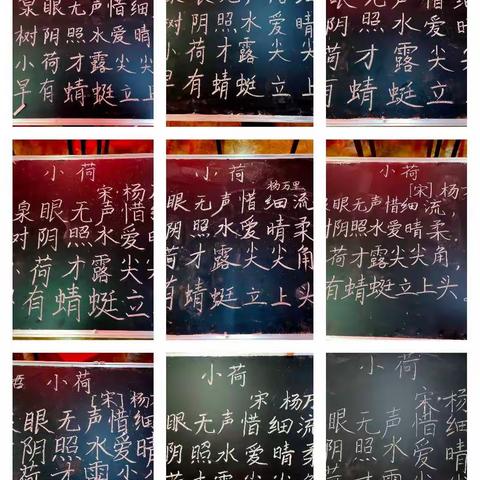 泉眼无声惜细
树阴照水爱晴
小荷才露尖尖
早有蜻蜓立上
树阴照水爱晴
小荷才露尖
早有蜻蜓立
阴照水爱晴
小荷才露尖
有蜻蜓立上
小荷
宋·杨万
泉眼无声惜
树阴照水爱
小荷才露尖
有蜻蜓立
小荷
杨万里
眼无声惜细流
阴照水爱晴柔
荷才露尖尖角
有蜻蜓立上头
小荷
[宋]杨万
眼无声惜细流，
阴照水爱晴柔。
荷才露尖尖角，
有蜻蜓立上头。
小荷
[宋]杨
眼无声惜细
阴照水爱晴
荷才露尖
小荷
宋 杨万
眼无声惜细流
阴照水爱晴柔
小荷
宋·杨
眼无声惜细
阴照水爱晴
荷才露尖尖